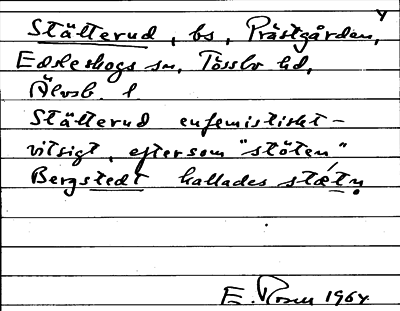 Stätterud, bs, Prästgården,
Edsleskogs sn, Tössbo hd,
Älvsb. l
Stätterud eufemistiskt-
vitsigt, eftersom "stöten"
Bergstedt kallades stǽtn
E. Rosen 1964